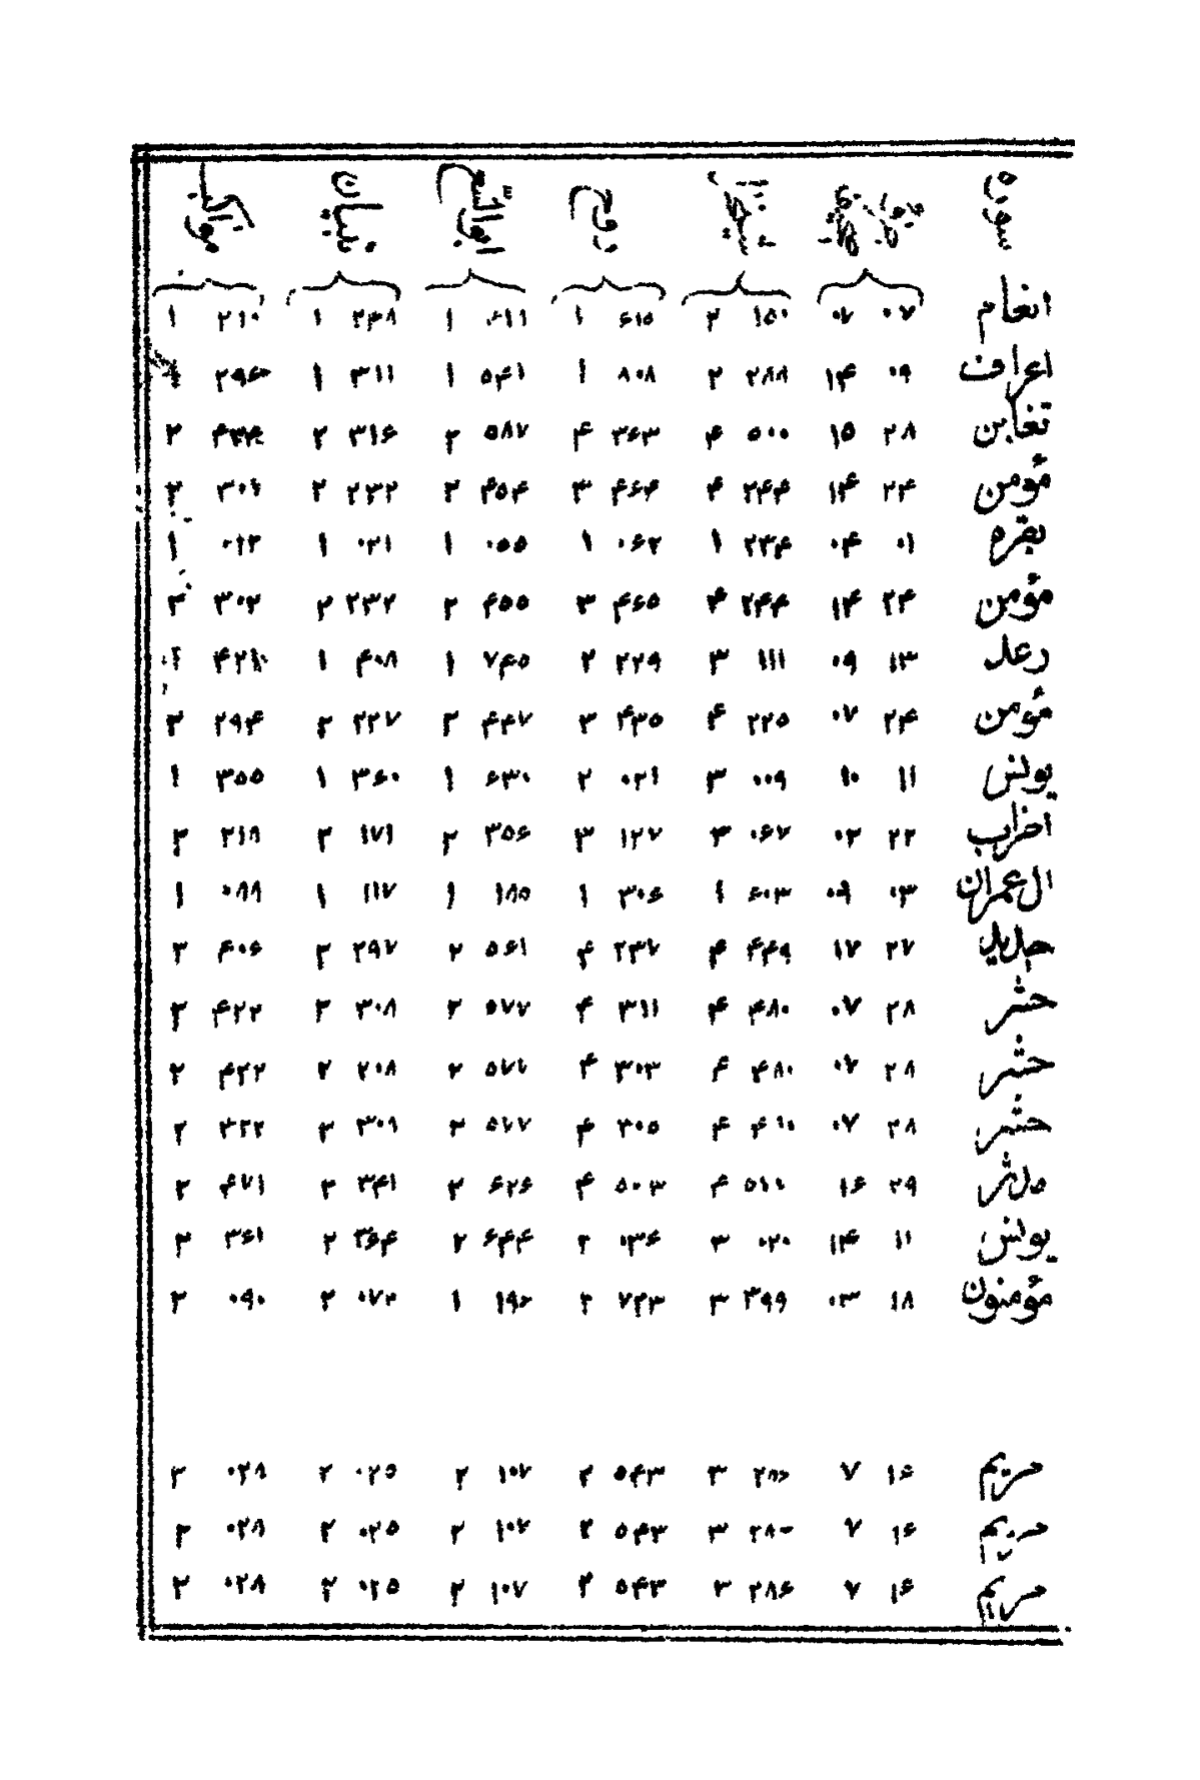 سوره روح ابوالفتوح تبیان
انعام ۰۷ ۰۷ ۱۵۰ ۲ ۶۱۵ ۱ ۶۱۱ ۱ ۲۴۸ ۱ ۲۱۰ ۱
اعراف ۰۹ ۱۴ ۲۸۸ ۲ ۸۰۸ ۱ ۵۴۱ ۱ ۳۱۱ ۱ ۲۹۶
تغابن ۲۸ ۱۵ ۵۰۰ ۴ ۳۶۳ ۴ ۵۸۷ ۲ ۳۱۶ ۲ ۲
مؤمن ۲۴ ۱۴ ۲۴۴ ۴ ۴۶۴ ۳ ۴۵۴ ۲ ۲۳۲ ۲ ۳۰۱ ۲
بقره ۰۱ ۰۴ ۲۳۴ ۱ ۰۶۲ ۱ ۰۵۵ ۱ ۰۲۱ ۱ ۰۱۳ ۱
مؤمن ۲۴ ۱۴ ۲۴۴ ۴ ۴۶۵ ۳ ۴۵۵ ۲ ۲۳۲ ۲ ۳۰۲ ۲
رعد ۱۳ ۰۹ ۱۱۱ ۳ ۲۲۹ ۲ ۷۴۵ ۱ ۴۰۸ ۱
مؤمن ۲۴ ۰۷ ۲۲۵ ۴ ۴۳۵ ۳ ۴۴۷ ۲ ۲۲۷ ۲ ۲۹۴ ۲
یونس ۱۱ ۱۰ ۰۰۹ ۳ ۰۲۱ ۲ ۶۳۰ ۱ ۳۶۰ ۱ ۳۵۵ ۱
احزاب ۲۲ ۰۲ ۰۶۷ ۴ ۱۲۷ ۳ ۳۵۶ ۲ ۱۷۱ ۲ ۲۱۸ ۲
ال عمران ۰۳ ۰۹ ۶۰۳ ۱ ۳۰۶ ۱ ۱۸۵ ۱ ۱۱۷ ۱ ۰۸۸ ۱
حدید ۲۷ ۱۷ ۴۴۹ ۴ ۲۳۷ ۴ ۵۶۱ ۲ ۲۹۷ ۲ ۴۰۶ ۲
حشر ۲۸ ۰۷ ۴۸۰ ۴ ۳۱۱ ۴ ۵۷۲ ۲ ۳۰۸ ۲ ۴۲۲ ۲
حشر ۲۸ ۰۷ ۴۸۰ ۴ ۳۰۳ ۴ ۵۷۲ ۲ ۲۰۸ ۲ ۴۲۲ ۲
حشر ۲۸ ۰۷ ۴۸۰ ۴ ۳۰۵ ۴ ۵۷۲ ۲ ۳۰۹ ۲ ۴۲۲ ۲
مدثر ۲۹ ۱۶ ۵۱۱ ۴ ۵۰۳ ۴ ۶۲۶ ۲ ۳۴۱ ۲ ۴۷۱ ۲
یونس ۱۱ ۱۴ ۰۲۰ ۳ ۰۳۶ ۲ ۶۴۴ ۲ ۳۶۴ ۲ ۳۶۱ ۲
مؤمنون ۱۸ ۰۳ ۳۹۹ ۳ ۷۲۳ ۲ ۱۹۶ ۱ ۰۷۲ ۲ ۰۹۰ ۲
مریم ۱۶ ۷ ۲۸۶ ۳ ۵۴۳ ۲ ۱۰۷ ۲ ۰۲۵ ۲ ۰۲۸ ۲
مریم ۱۶ ۷ ۳ ۵۴۳ ۲ ۱۰۷ ۲ ۰۲۵ ۲ ۰۲۸ ۲
مریم ۱۶ ۷ ۲۸۶ ۳ ۵۴۳ ۲ ۱۰۷ ۲ ۰۲۵ ۲ ۰۲۸ ۲